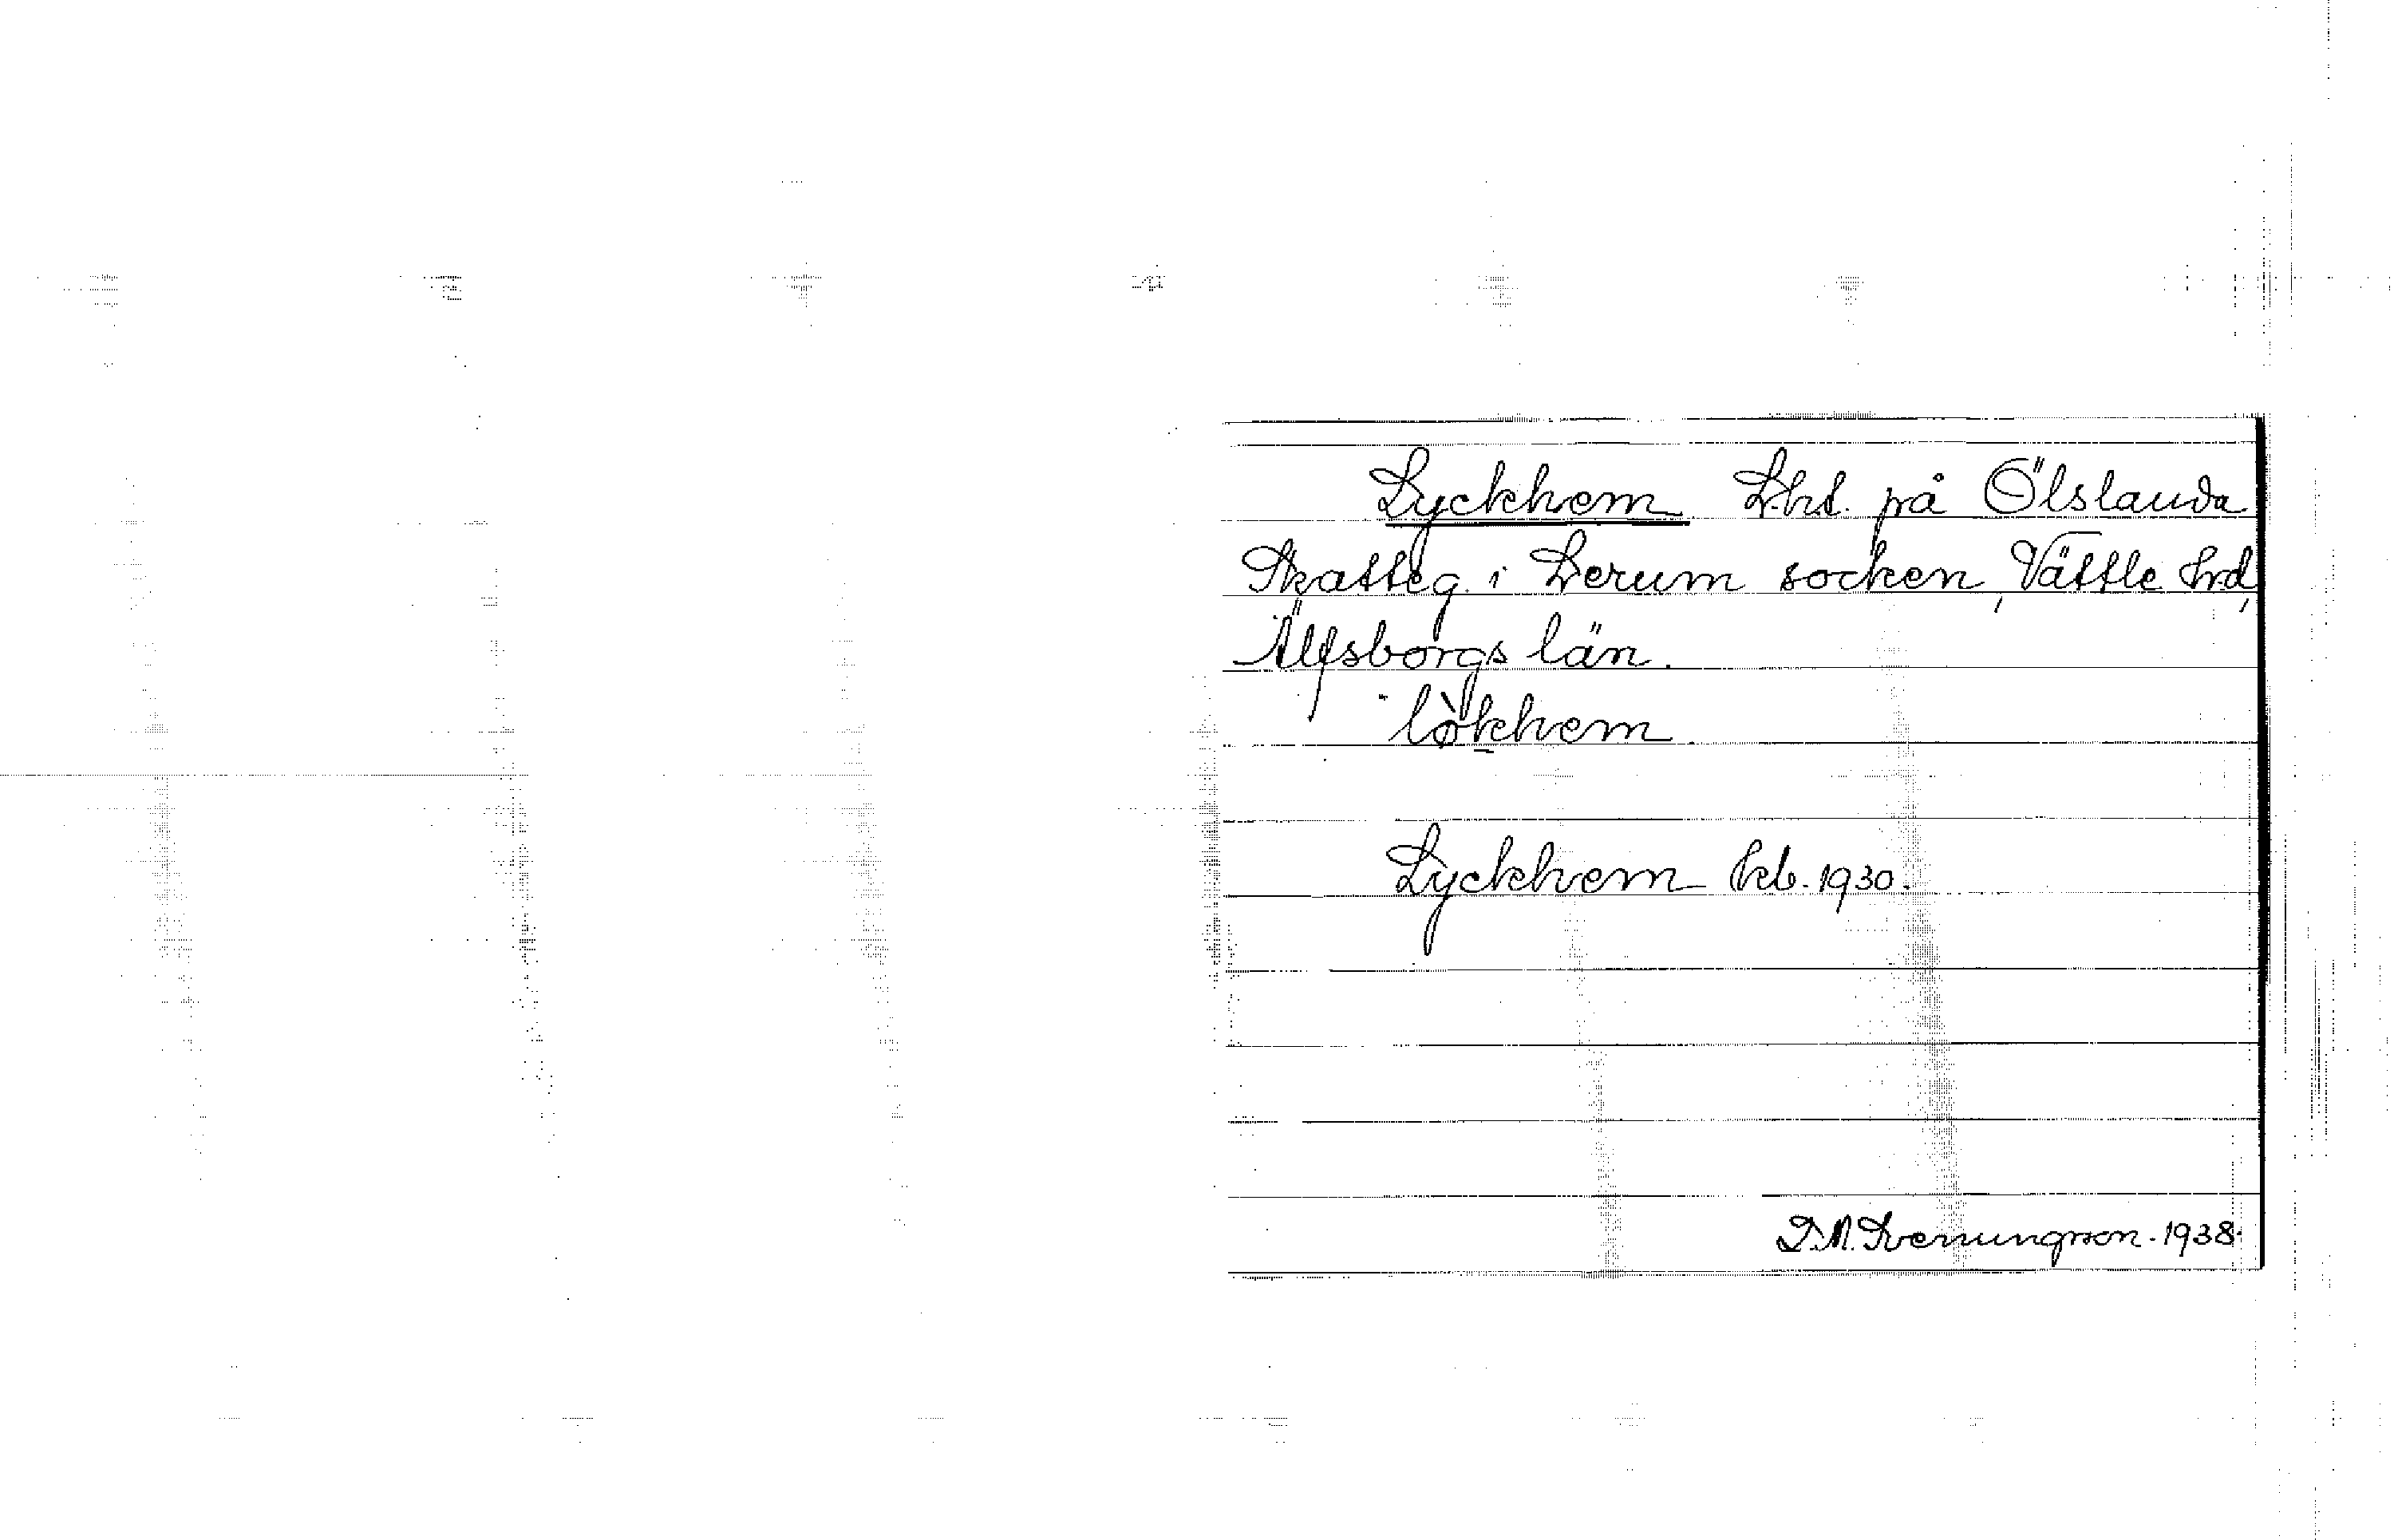 Lyckhem Lht. på Ölslanda
Skatteg. i Lerum socken, Vättle hrd,
Älfsborgs län.
lø̀khem
Lyckhem kb. 1930.
D.A. Svenungsson. 1938.